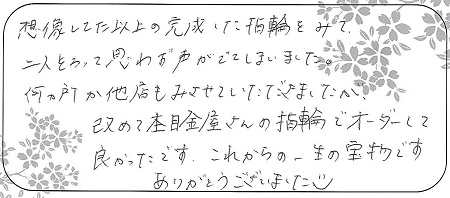 想像してた以上の完成した指輪をみて、
二人そろって思わず声がでてしまいました。
何カ所か他店もみさせていただきましたが、
改めて杢目金屋さんの指輪でオーダーして
良かったです。これからの一生の宝物です
ありがとうございました